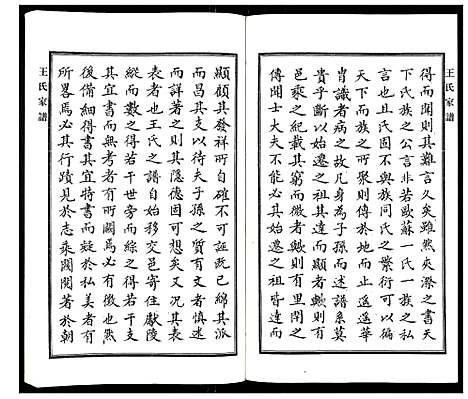 王氏家譜
得而聞則其難言久矣雖然夾漈之書天
下氏族之公言非若歐蘇一氏一族之私
言也且氏固不與族同氏之繁衍可以徧
天下而族之所聚則傳於地而止遙遙華
胄識者病之故凡身為子孫而述譜系莫
貴乎斷以始遷之祖其達而顯者歟則有
邑乘之紀載其窮而微者歟則有里閈之
傳聞士大夫不能必其始遷之祖皆達而
顯顧其發祥所自確不可誣旣已綿其派
而昌其支以待夫子孫之賢有才者慎述
而詳著之則其隱德固可想矣又况其表
表者也王氏之譜自始移交邑寄住獻陵
綜而數之得若干世旁而衍之得若干支
其宜書而無考者有所闕焉必有徵也然
後備細得書其宜特書而疑於私美者有
所畧焉必其行蹟見於志乘閥閱著於朝
王氏家譜